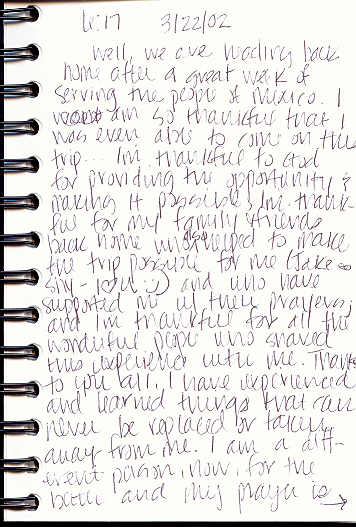 6:17 3/22/02
Well, we are heading back
home after a great week of
serving the people of Mexico. I
am so thankful that I
was even able to come on this
trip... I'm thankful to God
for providing the opportunity &
making it possible, I'm thank
ful for my family & friends
back home who also helped to make
the trip possible for me (Jake
shy - :) and who have
supported me w/ their prayers,
and I'm thankful for all the
wonderful people who shared
this experience with me. Thanks
to you all, I have experienced
and learned things that can
never be replaced or taken
away from me. I am a diff-
erent person, now, for the
better and my prayer is →